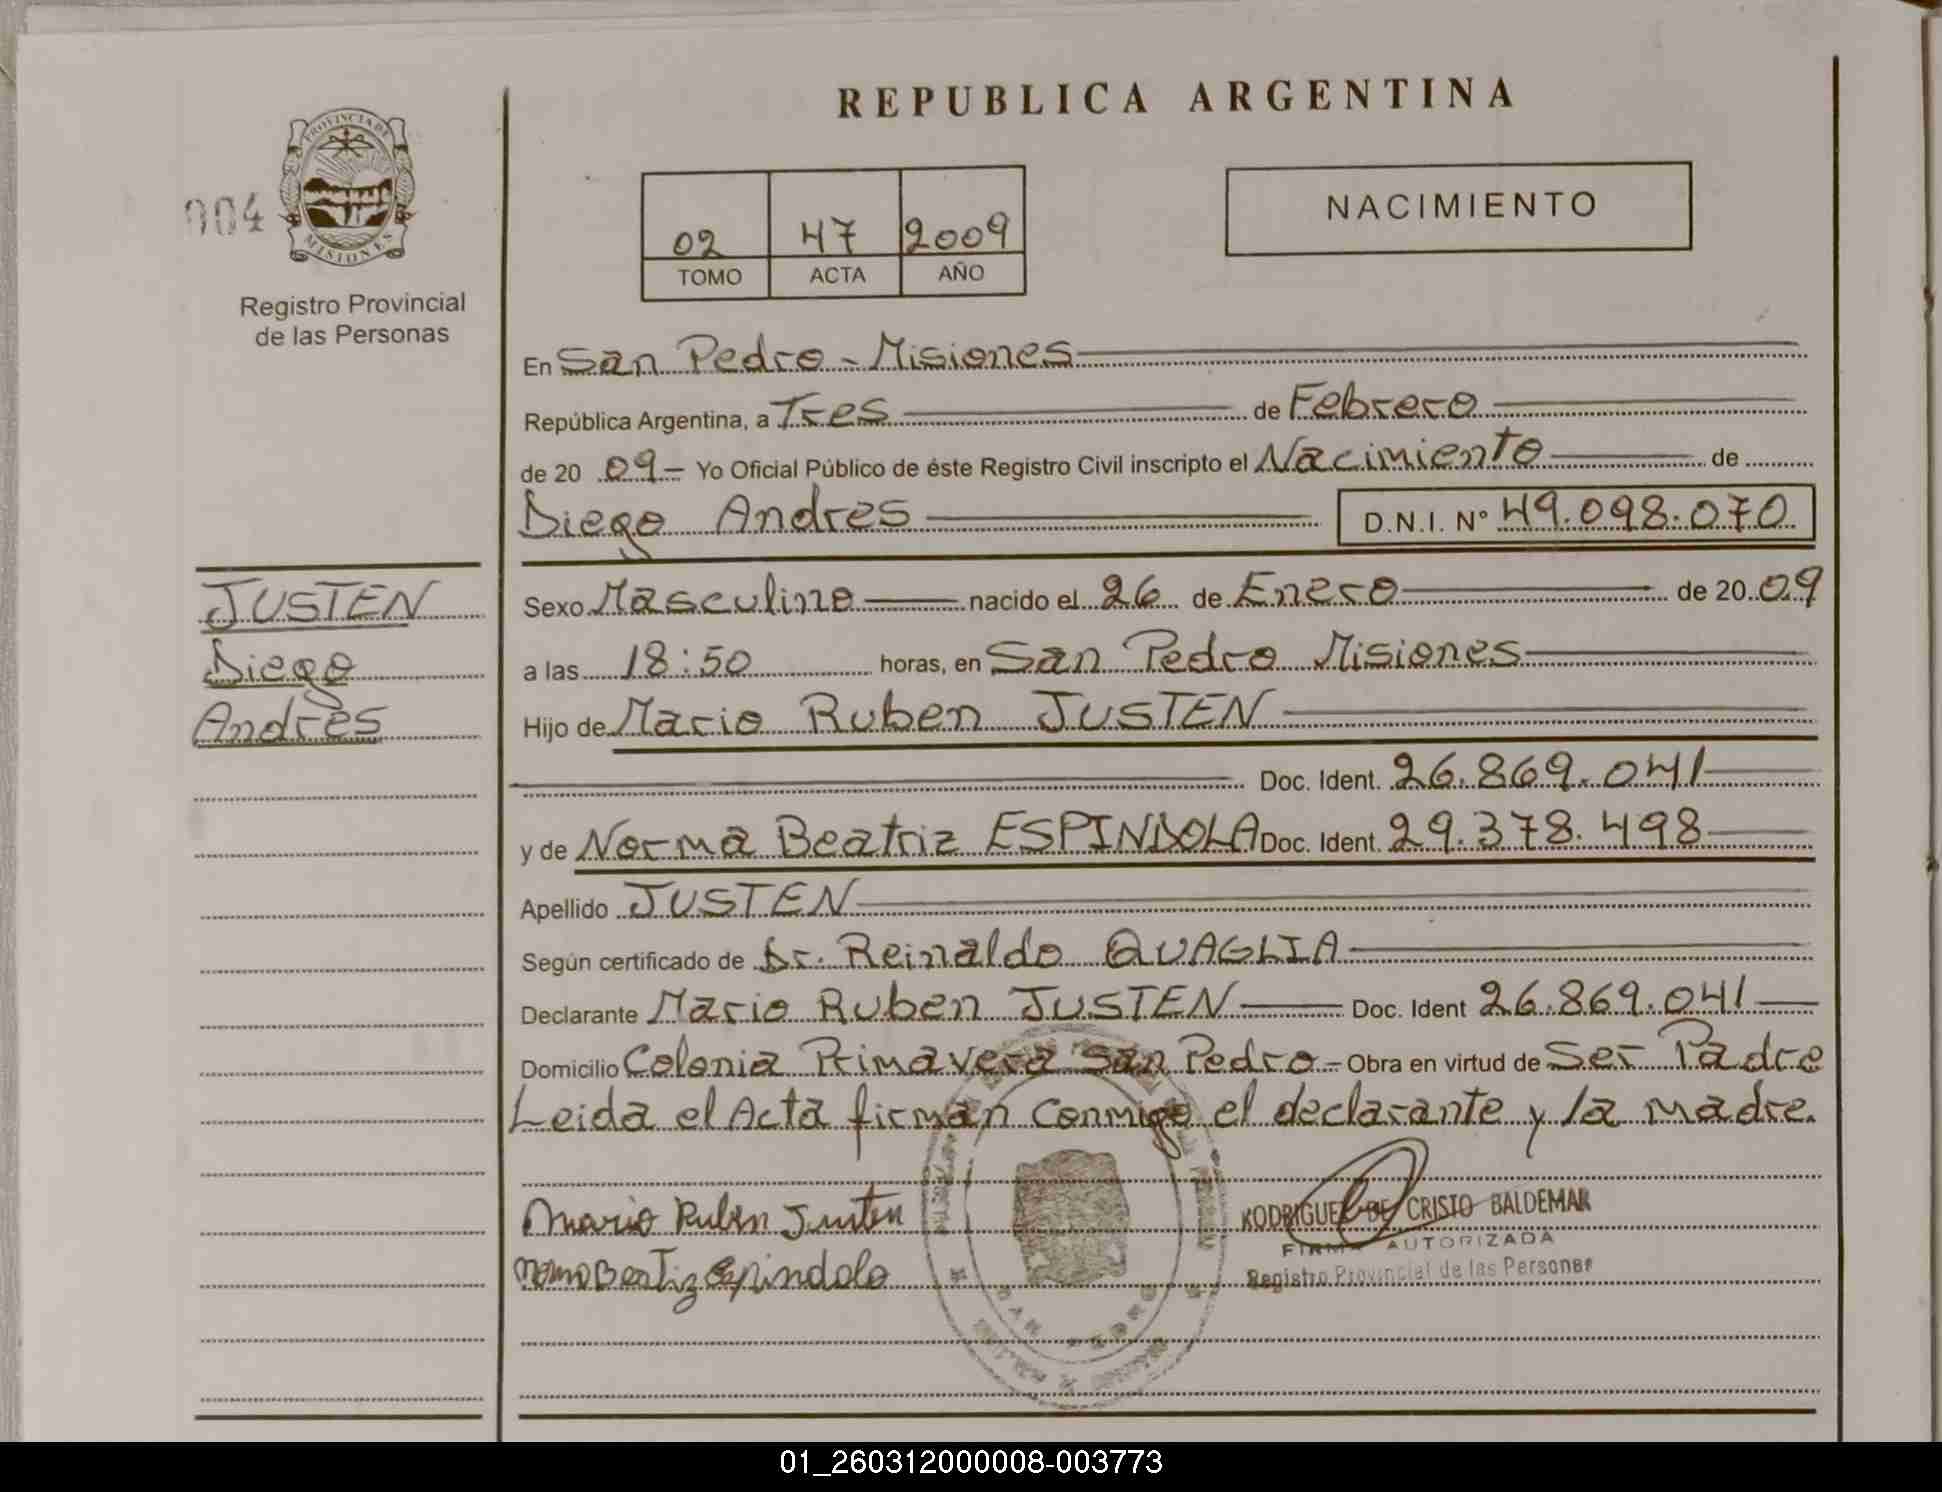 REPUBLICA ARGENTINA
PROVINCIA DE
MISIONES
004
Registro Provincial
de las Personas
02 47 2009
TOMO ACTA AÑO
NACIMIENTO
En San Pedro - Misiones
República Argentina, a Tres de Febrero
de 20 09- Yo Oficial Público de éste Registro Civil inscripto el Nacimiento de
Diego Andres D.N.I. N° 49.098.070
JUSTEN
Diego
Andres
Sexo Masculino nacido el 26 de Enero de 20 09
a las 18:50 horas, en San Pedro Misiones
Hijo de Mario Ruben JUSTEN
Doc. Ident. 26.869.041
y de Norma Beatriz ESPINDOLA Doc. Ident. 29.378.498
Apellido JUSTEN
Según certificado de Dr. Reinaldo QUAGLIA
Declarante Mario Ruben JUSTEN Doc. Ident 26.869.041
Domicilio Colonia Primavera San Pedro - Obra en virtud de Ser Padre
Leida el Acta firman conmigo el declarante y la madre.
Mario Ruben Justen
RODRIGUEZ DE CRISTO BALDEMAR
FIRMA AUTORIZADA
Norma Beatriz Espindola
Registro Provincial de las Personas
SAN PEDRO
01_260312000008-003773